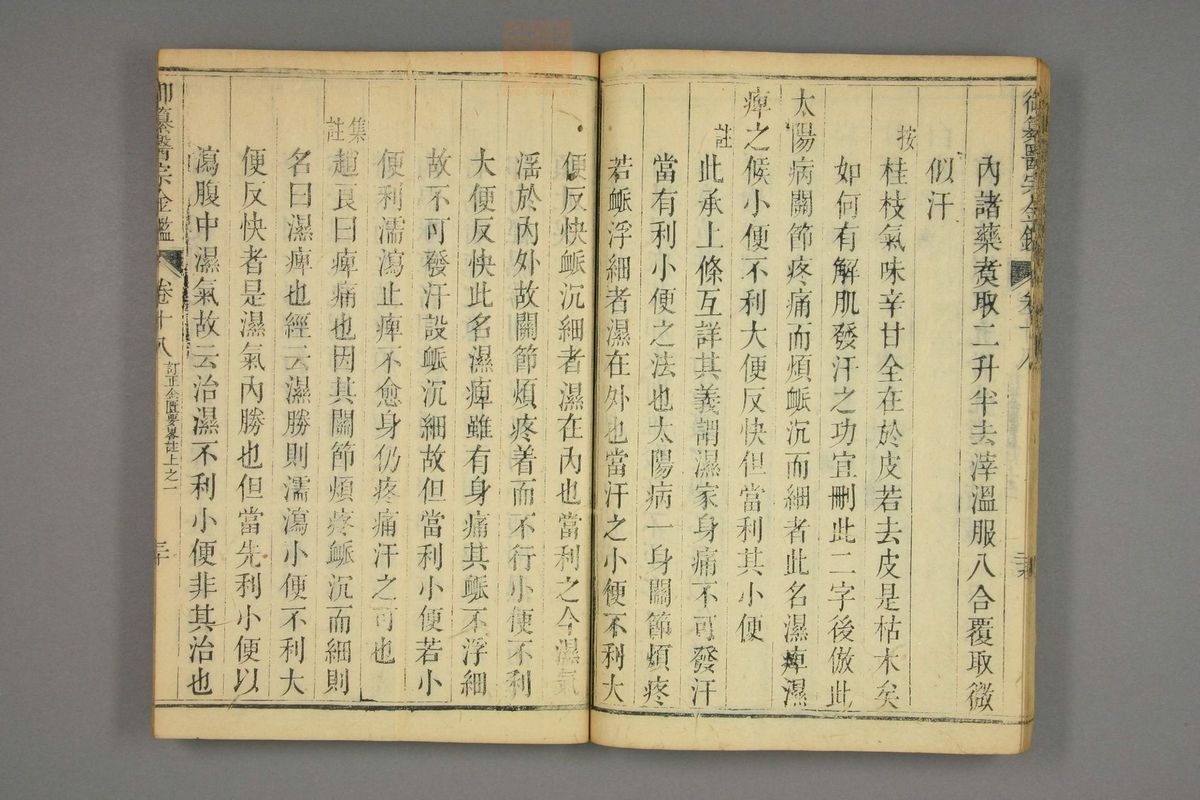 內諸藥煑取二升半去滓溫服八合覆取微
似汗
按
桂枝氣味辛甘全在於皮若去皮是枯木矣
如何有解肌發汗之功宜刪此二字後倣此
太陽病關節疼痛而煩脈沉而細者此名濕痺濕
痺之候小便不利大便反快但當利其小便
註
此承上條互詳其義謂濕家身痛不可發汗
當有利小便之法也太陽病一身關節煩疼
若脈浮細者濕在外也當汗之小便不利大
便反快脈沉細者濕在內也當利之今濕氣
淫於內外故關節煩疼着而不行小便不利
大便反快此名濕痺雖有身痛其脈不浮細
故不可發汗設脈沉細故但當利小便若小
便利濡瀉止痺不愈身仍疼痛汗之可也
集註
趙良曰痺痛也因其關節煩疼脈沉而細則
名曰濕痺也經云濕勝則濡瀉小便不利大
便反快者是濕氣內勝也但當先利小便以
瀉腹中濕氣故云治濕不利小便非其治也
御纂醫宗金鑑
卷十八
訂正金匱要畧註上之一
三十